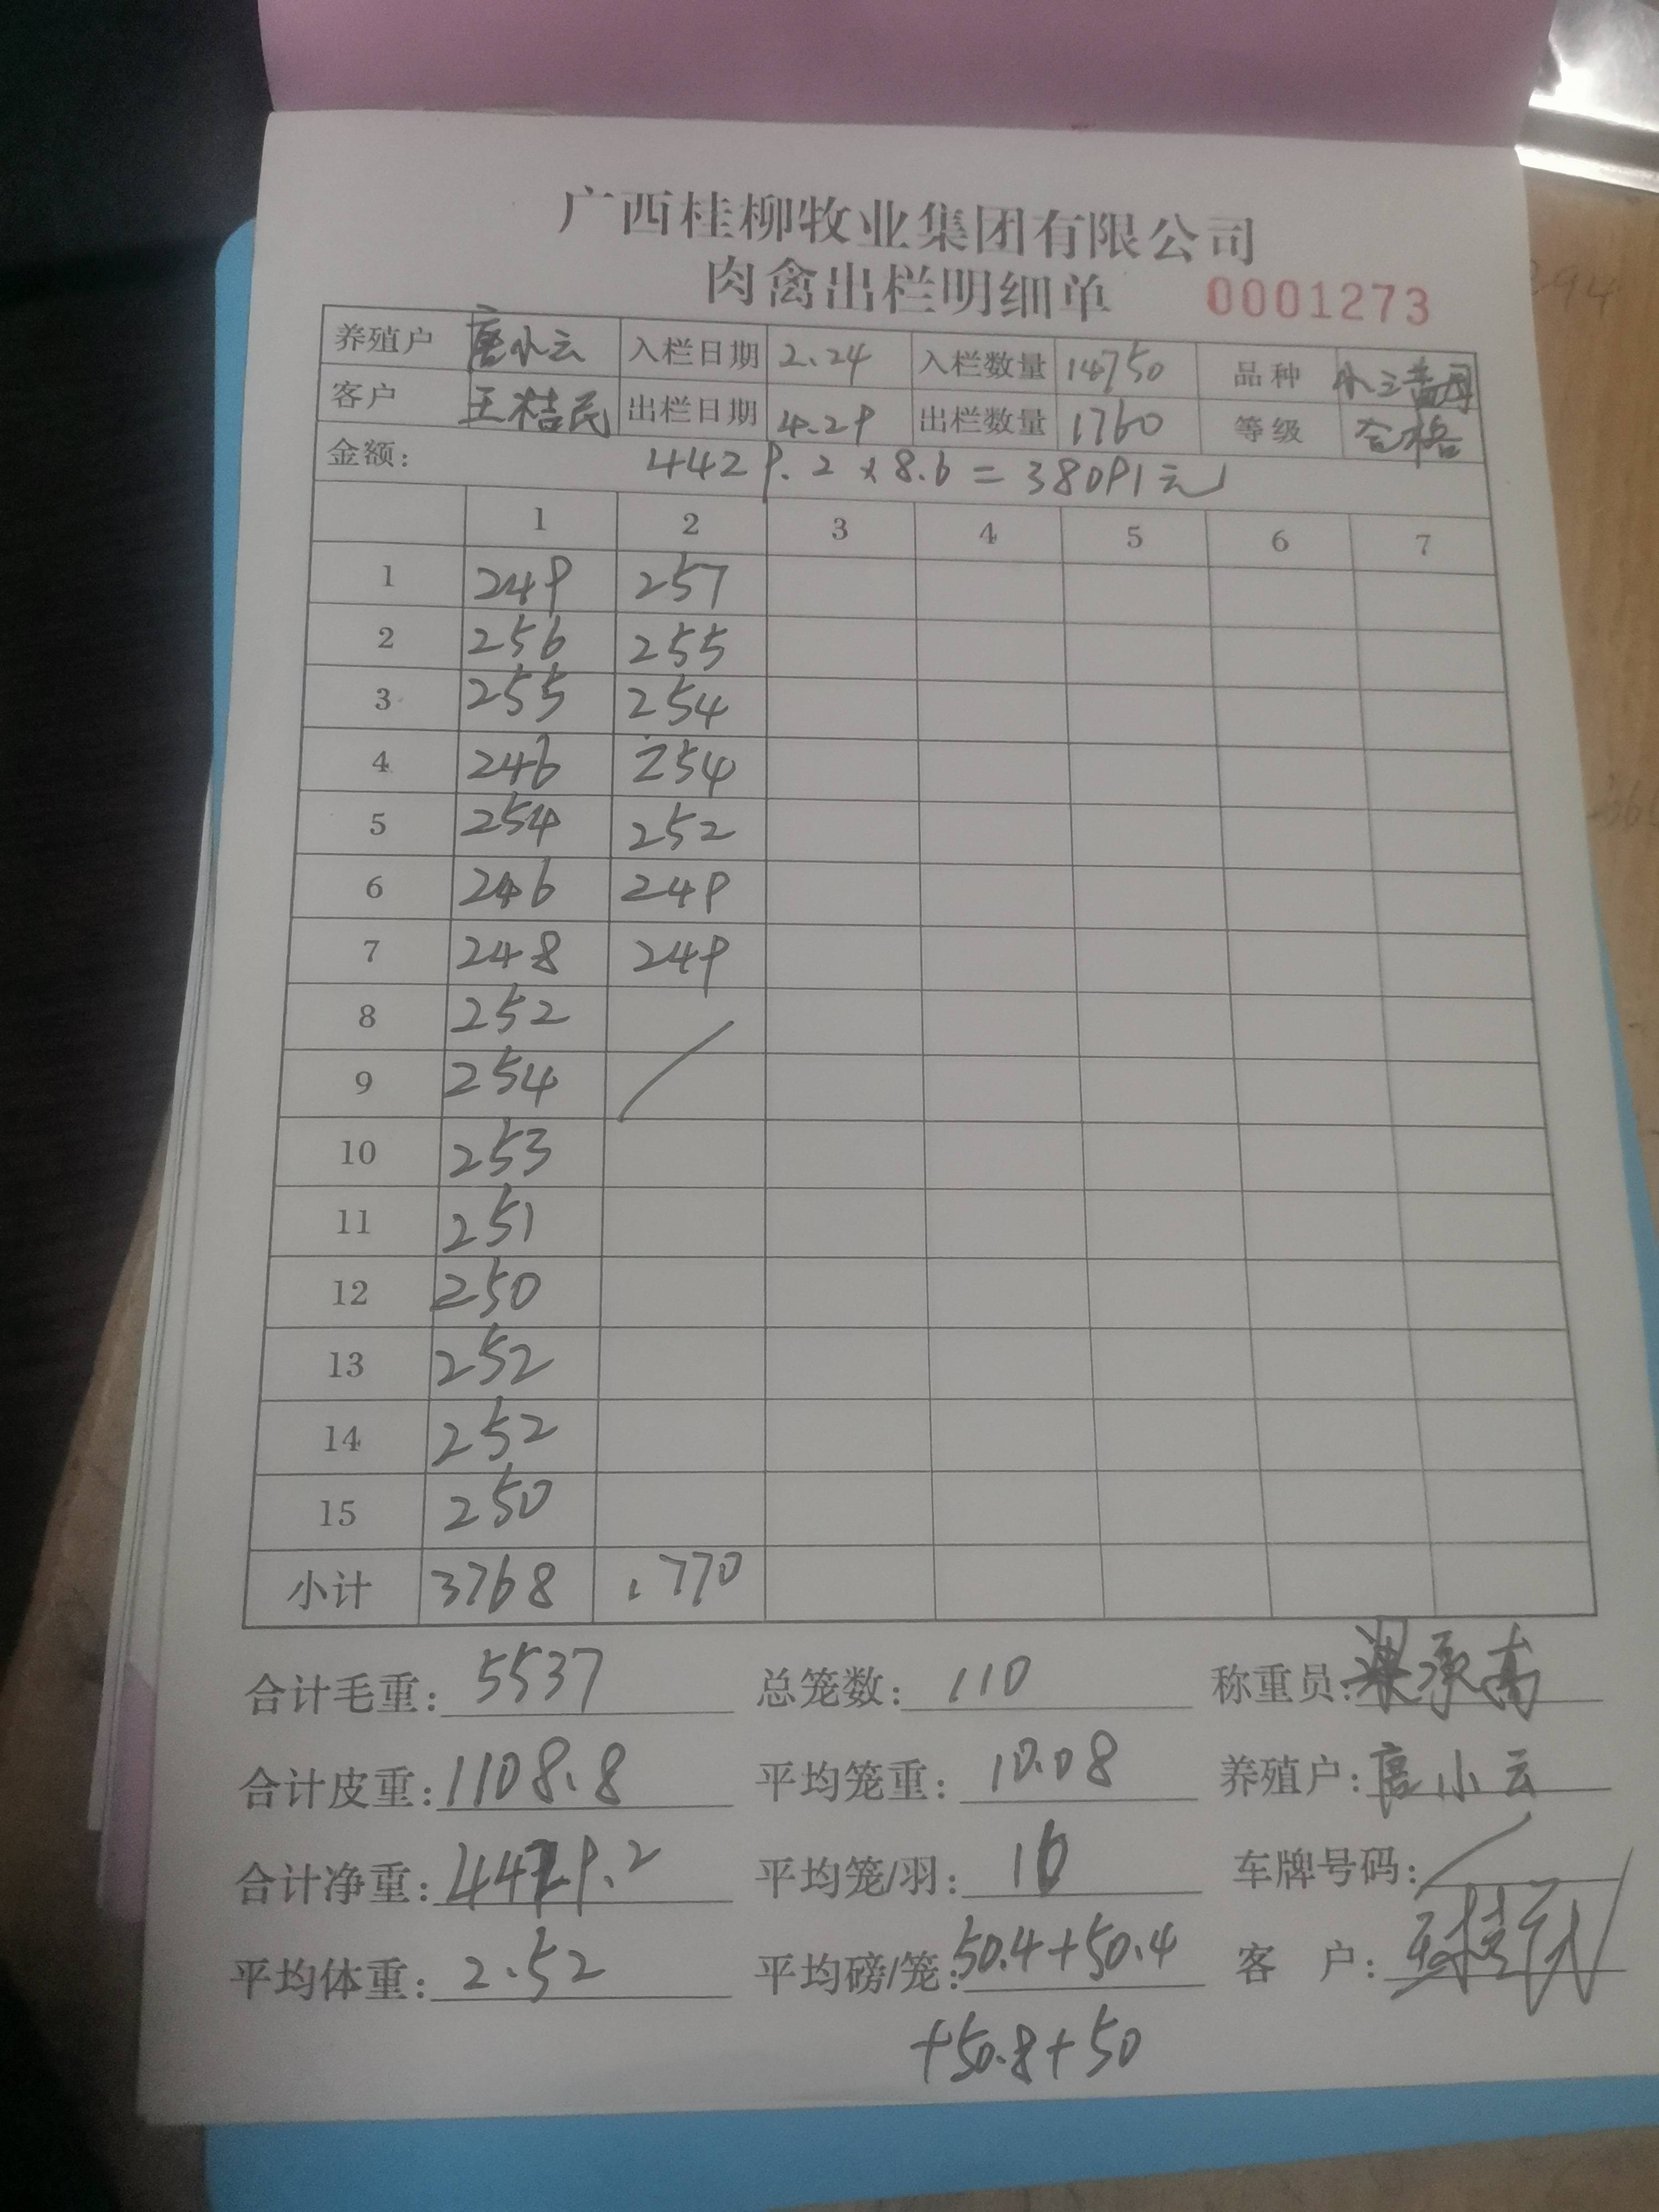 广西桂柳牧业集团有限公司
肉禽出栏明细单 0001273
养殖户 唐小云 入栏日期 2.24 入栏数量 14750 品种
客户 王桔民 出栏日期 4.29 出栏数量 1760 等级 合格
金额: 4429.2×8.6=38091元
1 2 3 4 5 6 7
1 249 257
2 256 255
3 255 254
4 246 254
5 254 252
6 246 249
7 248 249
8 252
9 254
10 253
11 251
12 250
13 252
14 252
15 250
小计 3768 1770
合计毛重: 5537 总笼数: 110 称重员:
合计皮重: 1108.8 平均笼重: 10.08 养殖户: 唐小云
合计净重: 4429.2 平均笼/羽: 16 车牌号码:
平均体重: 2.52 平均磅/笼: 50.4+50.4 客户:
+50.8+50